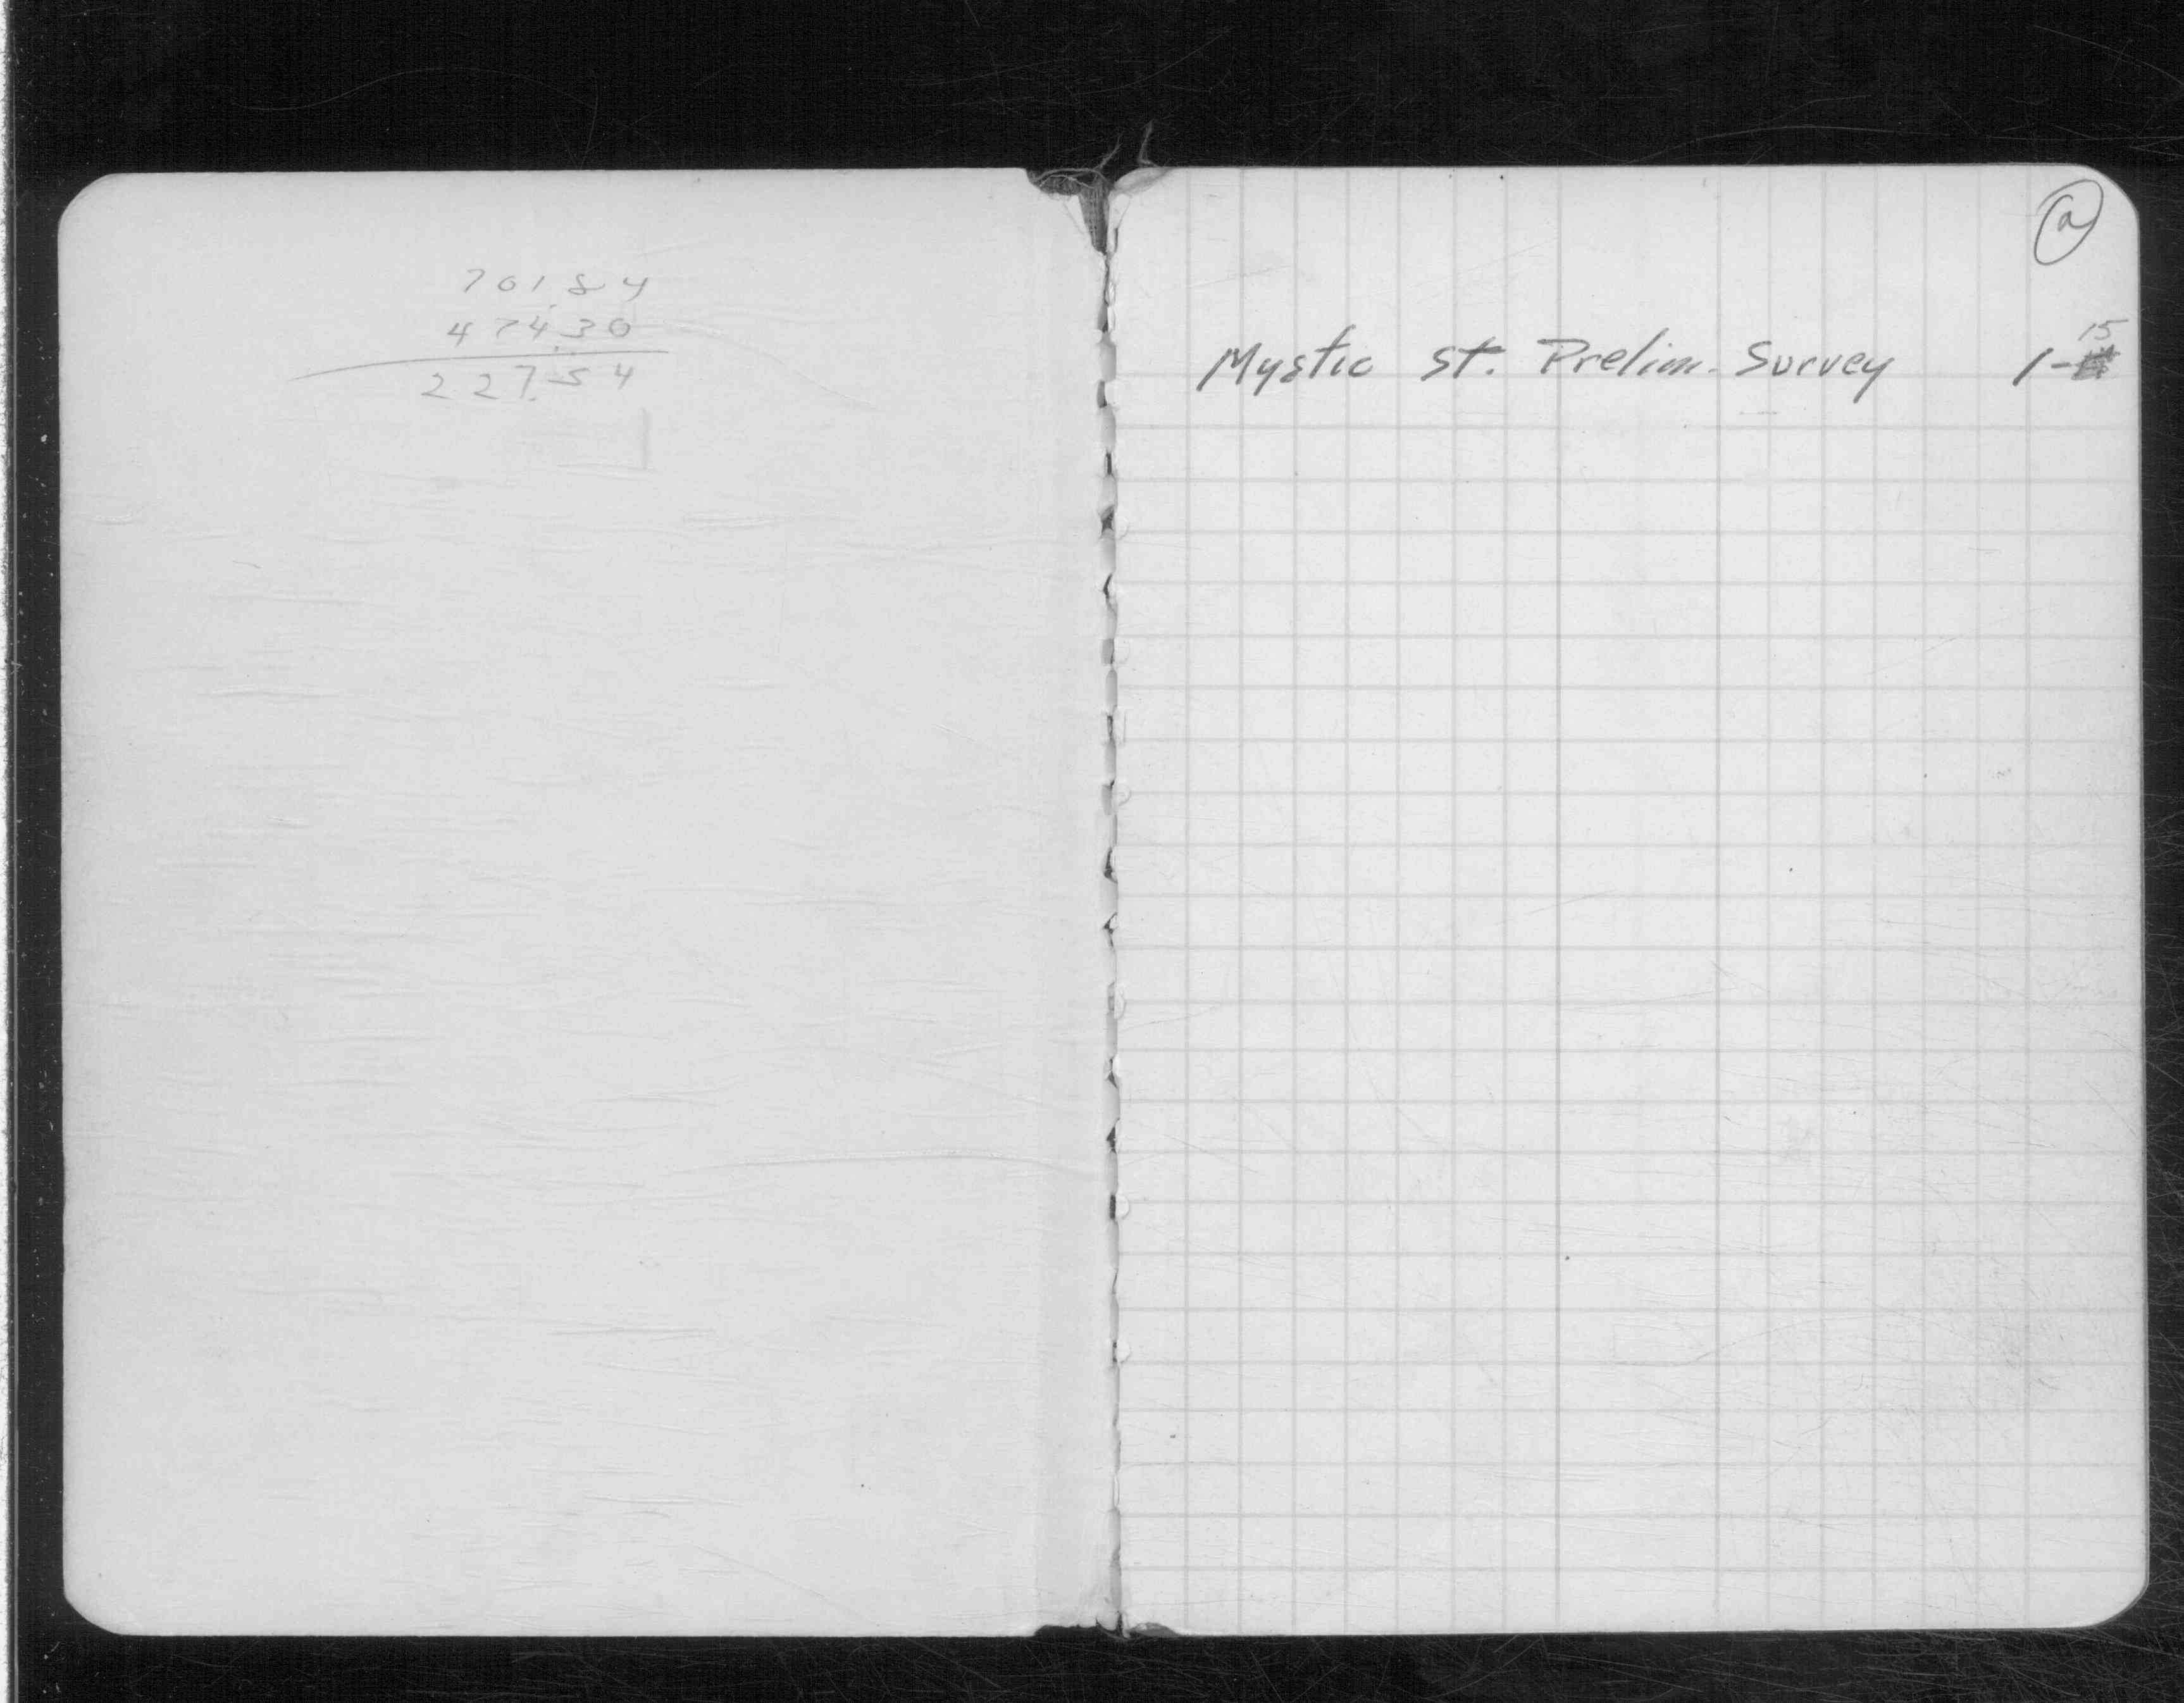 701.84
474.30
227.54
a
Mystic St. Prelim. Survey 1-15